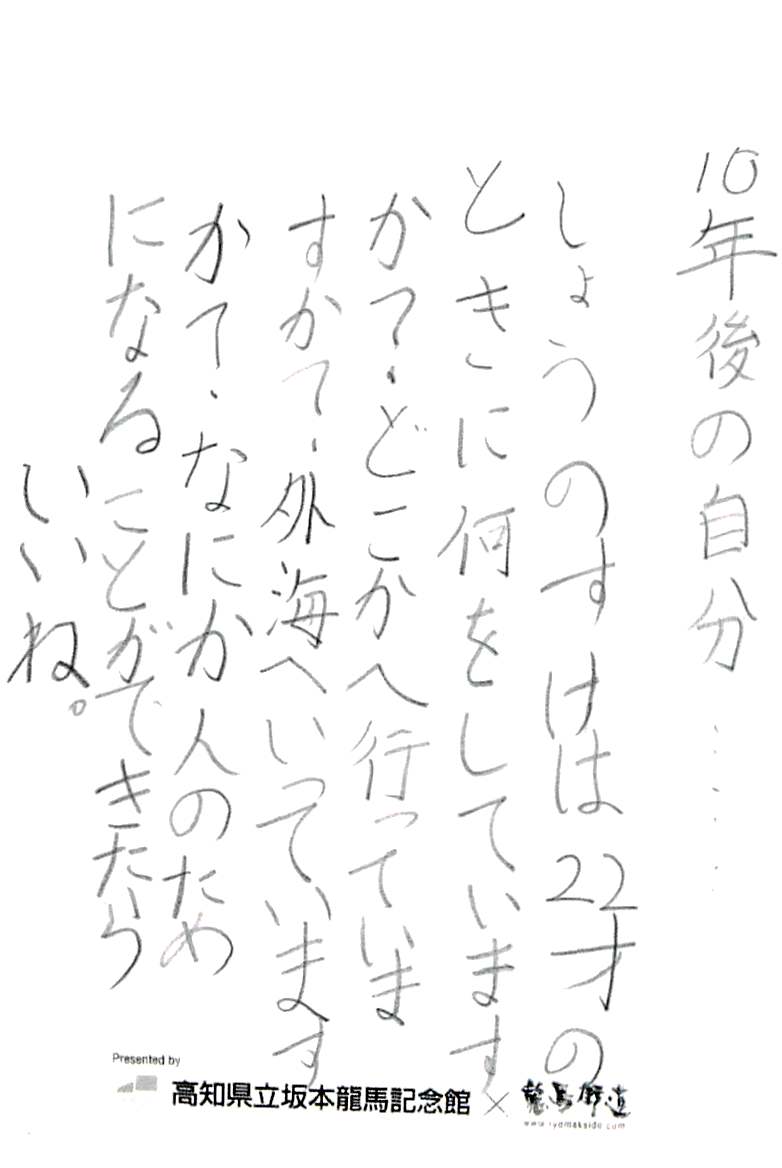 10年後の自分……
しょうのすけは22才の
ときに何をしています
か?。どこかへ行っていま
すか?。外海へいっています
か?。なにか人のため
になることができたら
いいね。
Presented by
高知県立坂本龍馬記念館×龍馬街道
www.ryomakaido.com